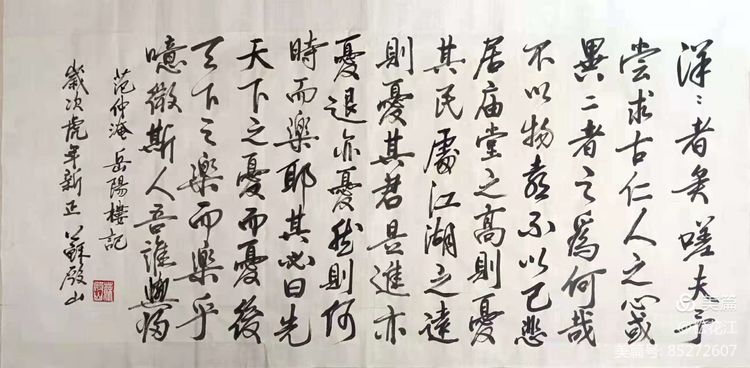 洋〻者矣嗟夫予
尝求古仁人之心或
異二者之爲何哉
不以物喜不以己悲
居庙堂之高則憂
其民處江湖之遠
則憂其君是進亦
憂退亦憂然則何
時而樂耶其必曰先
天下之憂而憂後
天下之樂而樂乎
噫微斯人吾誰與歸
范仲淹岳陽樓記
歲次虎年新正蘇殿山
美篇
@松花江
美篇号: 85272607